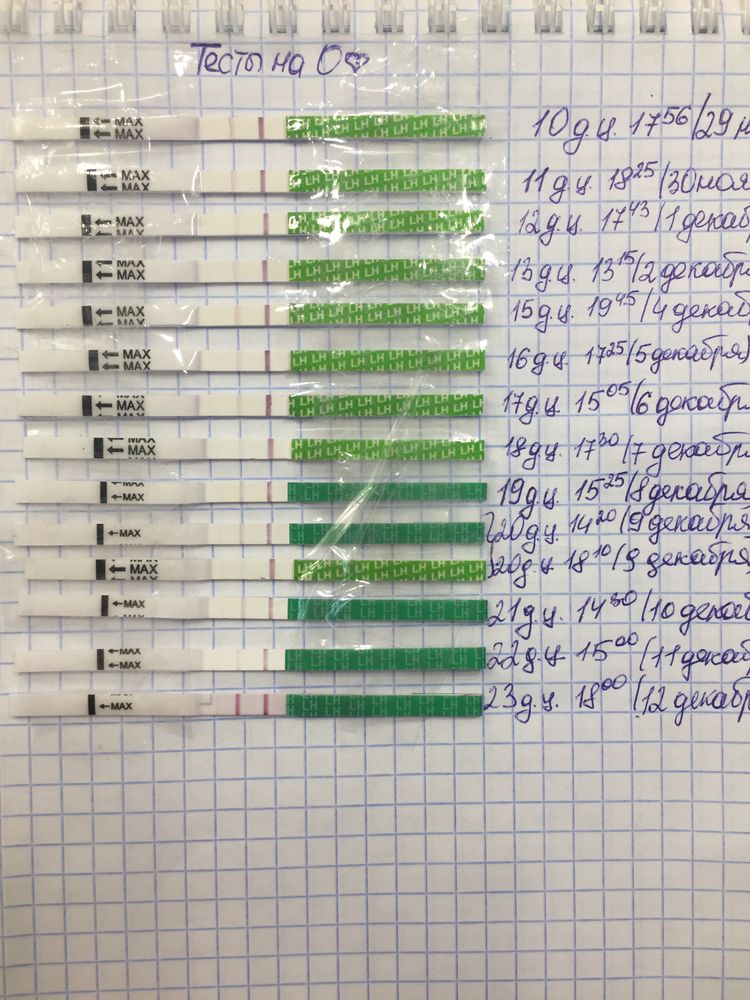 Тесты на О♡
MAX
MAX
LH LH LH LH LH LH
10 д.ц. 17⁵⁶/29 н
MAX
MAX
LH LH LH LH LH LH
11 д.ц. 18²⁵/30 ноя
MAX
MAX
LH LH LH LH LH LH
12 д.ц. 17⁴³/1 декаб
MAX
MAX
LH LH LH LH LH LH
13 д.ц. 13¹⁵/2 декабр
MAX
MAX
LH LH LH LH LH LH
15 д.ц. 19⁴⁵/4 декаб
MAX
LH LH LH LH LH LH
16 д.ц. 17²⁵/5 декабря)
MAX
MAX
LH LH LH LH LH LH
17 д.ц. 15⁰⁵/6 декабр
MAX
MAX
LH LH LH LH LH LH
18 д.ц. 17³⁰/7 декабр
MAX
MAX
LH LH LH LH LH LH
19 д.ц. 15²⁵/8 декабря
MAX
LH LH LH LH LH LH
20 д.ц. 14²⁰/9 декабря)
MAX
MAX
LH LH LH LH LH LH
20 д.ц. 18¹⁰/9 декабря)
MAX
LH LH LH LH LH LH
21 д.ц. 14³⁰/10 декаб
MAX
MAX
LH LH LH LH LH LH
22 д.ц. 15⁰⁰/11 декаб
MAX
LH LH LH LH LH LH
23 д.ц. 18⁰⁰/12 декаб